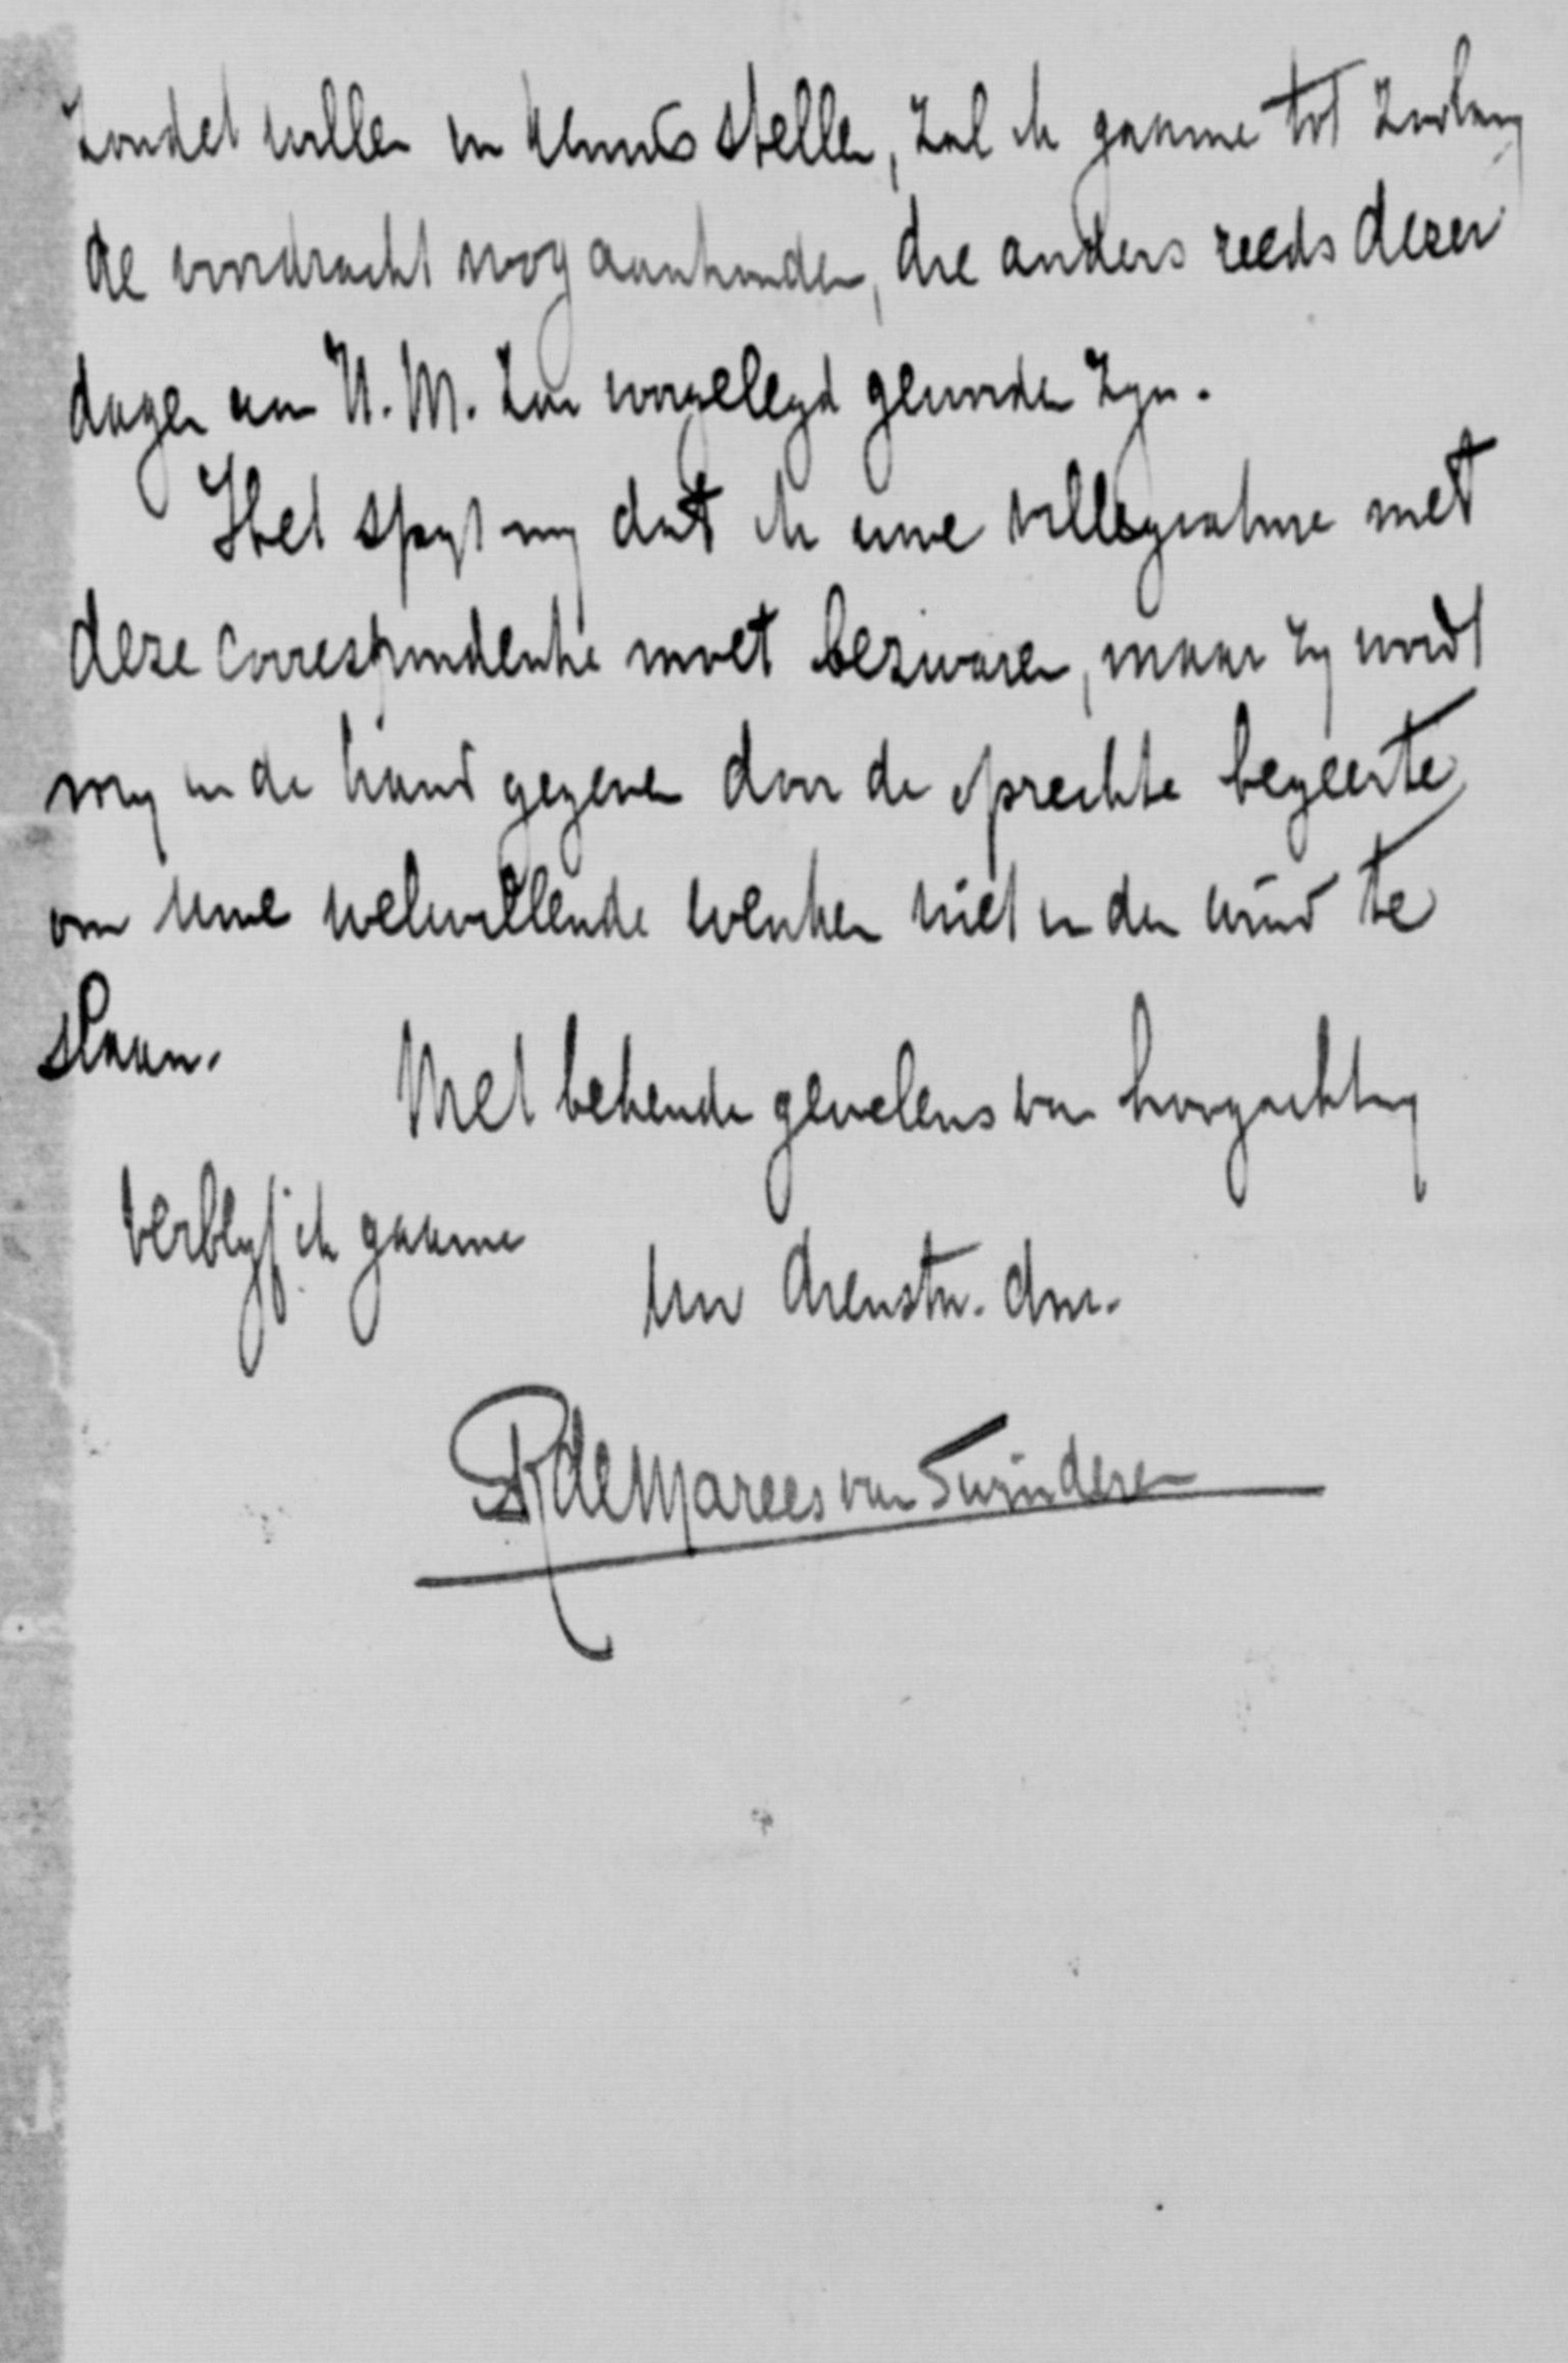 zoudet willen in kennis stellen, zal ik gaarne tot zoolang
de voordracht nog aanhouden, die anders reeds dezer
dagen aan H. M. zou voorgelegd geworden zyn.
Het spyt my dat ik uwe villegiature met
deze correspondentie moet bezwaren, maar zy wordt
my in de hand gegeven door de oprechte begeerte
om uwe welwillende wenken niet in den wind te
slaan.
Met bekende gevoelens van hoogachting
verblyf ik gaarne
Uw dienstw. dnr.
R de Marees van Swinderen